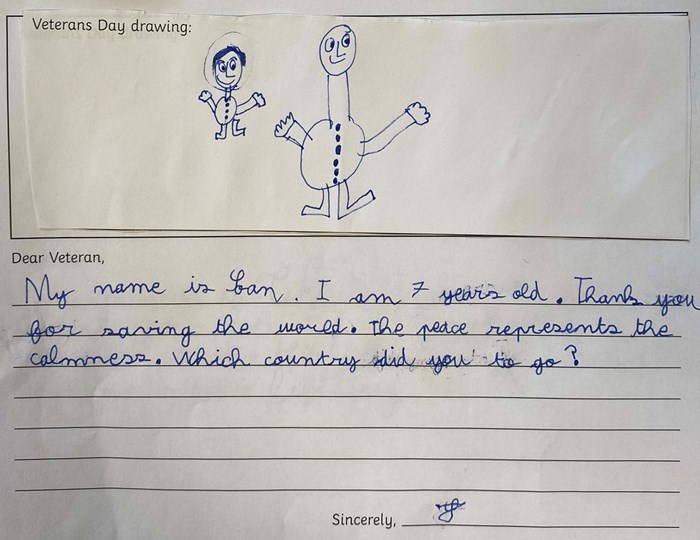 Veterans Day drawing:
Dear Veteran,
My name is Ean. I am 7 years old. Thank you
for saving the world. The peace represents the
calmness. Which country did you to go?
Sincerely,